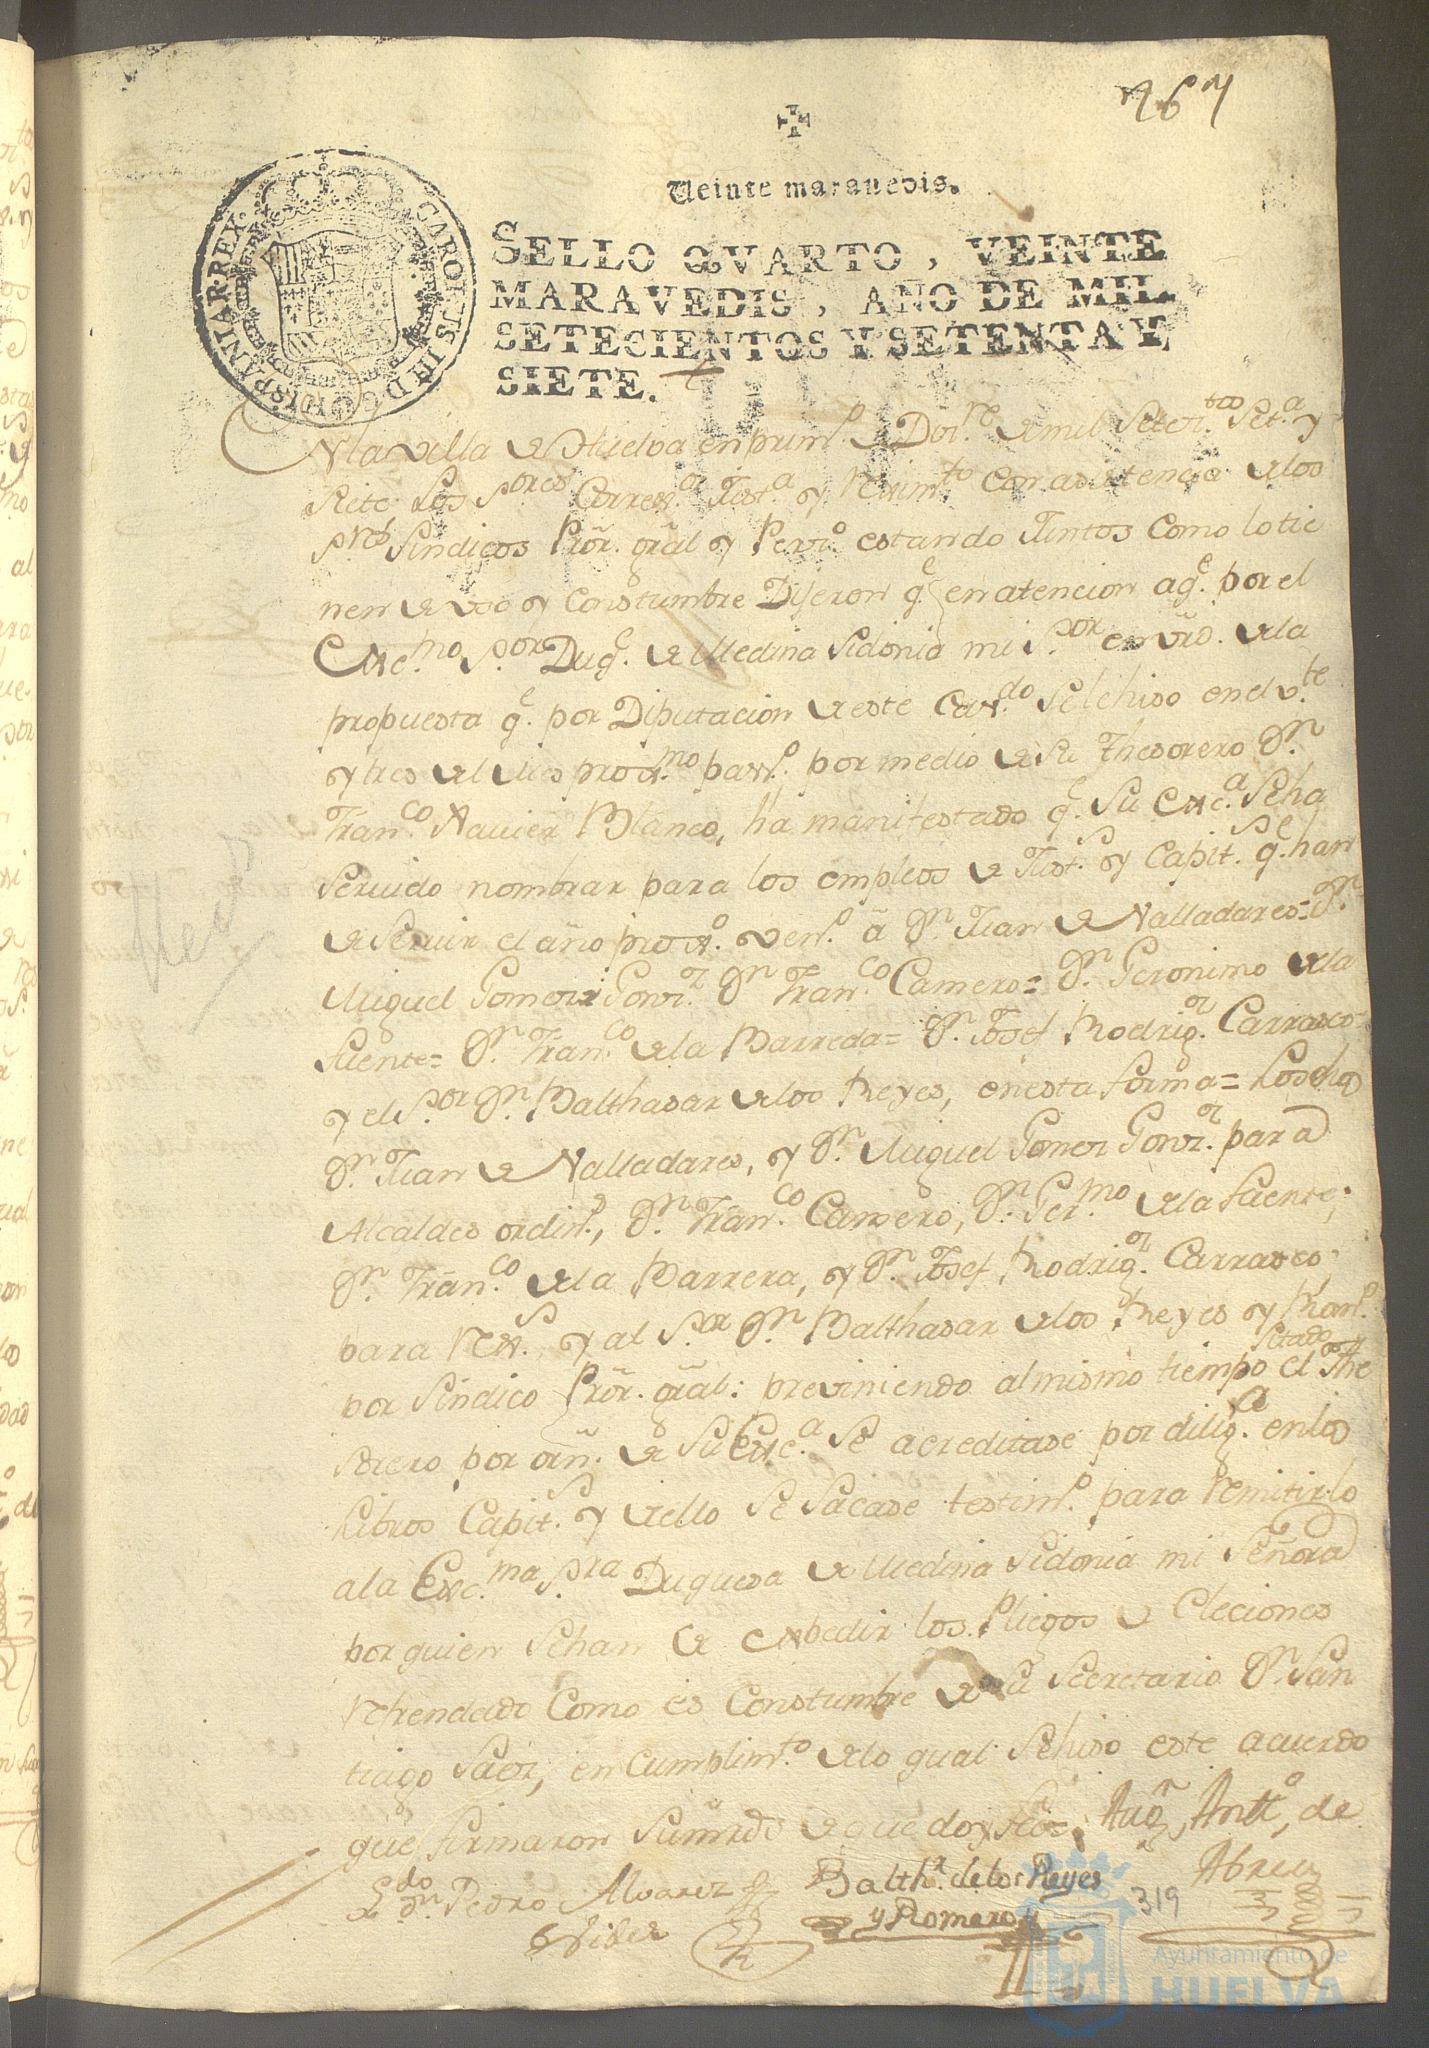 767
Veinte maravedis.
CAROLUS III D G HISPANIAR REX
SELLO QVARTO, VEINTE
MARAVEDIS, AÑO DE MIL
SETECIENTOS Y SETENTA Y
SIETE.
En la villa de Huelva en prim.º de Dizre de mil Setezi.tos Set.a y
Siete los S.ores Correx.or Just.a y Reximto con asistencia de los
S.res Sindicos Prõr. gr̃al y Perso.º estando Juntos como lo tie
nen de uso y Constumbre Dijeron q.e en atencion a q.e por el
Exc.mo S.or Duq.e de Medina Sidonia mi S.or en vr̃d. de la
propuesta q.e por Diputacion de este Cav.do se le hiso en el v.te
y tres del Mes proxi.mo pax.º por medio de su Thesorero Dn.
Fran.co Xavier Blanco, ha manifestado q.e Su Exc.a Se ha
Servido nombrar para los empleos de Just.s y Capit.s q.e han
de Servir el año prox.º ven.º â Dn. Juan de Valladares= Dn.
Miguel Gomez Gonz.z Dn. Fran.co Camero= Dn. Geronimo de la
Fuente= Dn. Fran.co de la Barreda= Dn. Josef Rodrig.z Carrasco=
y el S.or Dn. Balthasar de los Reyes, en esta forma= Los dhos
Dn. Juan de Valladares, y Dn. Miguel Gomez Gonz.z para
Alcaldes ordin.s, Dn. Fran.co Camero, Dn. Ger.mo de la Fuente;
Dn. Fran.co de la Barrera, y Dn. Josef Rodrig.z Carrasco,
para Rex.s, y al S.or Dn. Balthasar de los Reyes y Rom.º
por Sindico Prõr. gr̃al: previniendo al mismo tiempo el citado The
sorero por orñ. de Su Exc.a Se acreditase por dilig.a en los
Libros Capit.s y de ello Se Sacase testim.º para Remitirlo
a la Exc.ma S.ra Duquesa de Medina Sidonia mi Señora
por quien Se han de expedir los Pliegos de Eleciones
Refrendado Como es Constumbre de su Secretario Dn. San
tiago Saez, en Cumplim.to de lo qual Se hiso este acuerdo
que firmaron de que doy fee=
Aug.n Ant.º de
Abreu
L.do Dn. Pedro Alvarez
Balth.r de los Reyes
y Romero
319
Ayuntamiento de
HUELVA